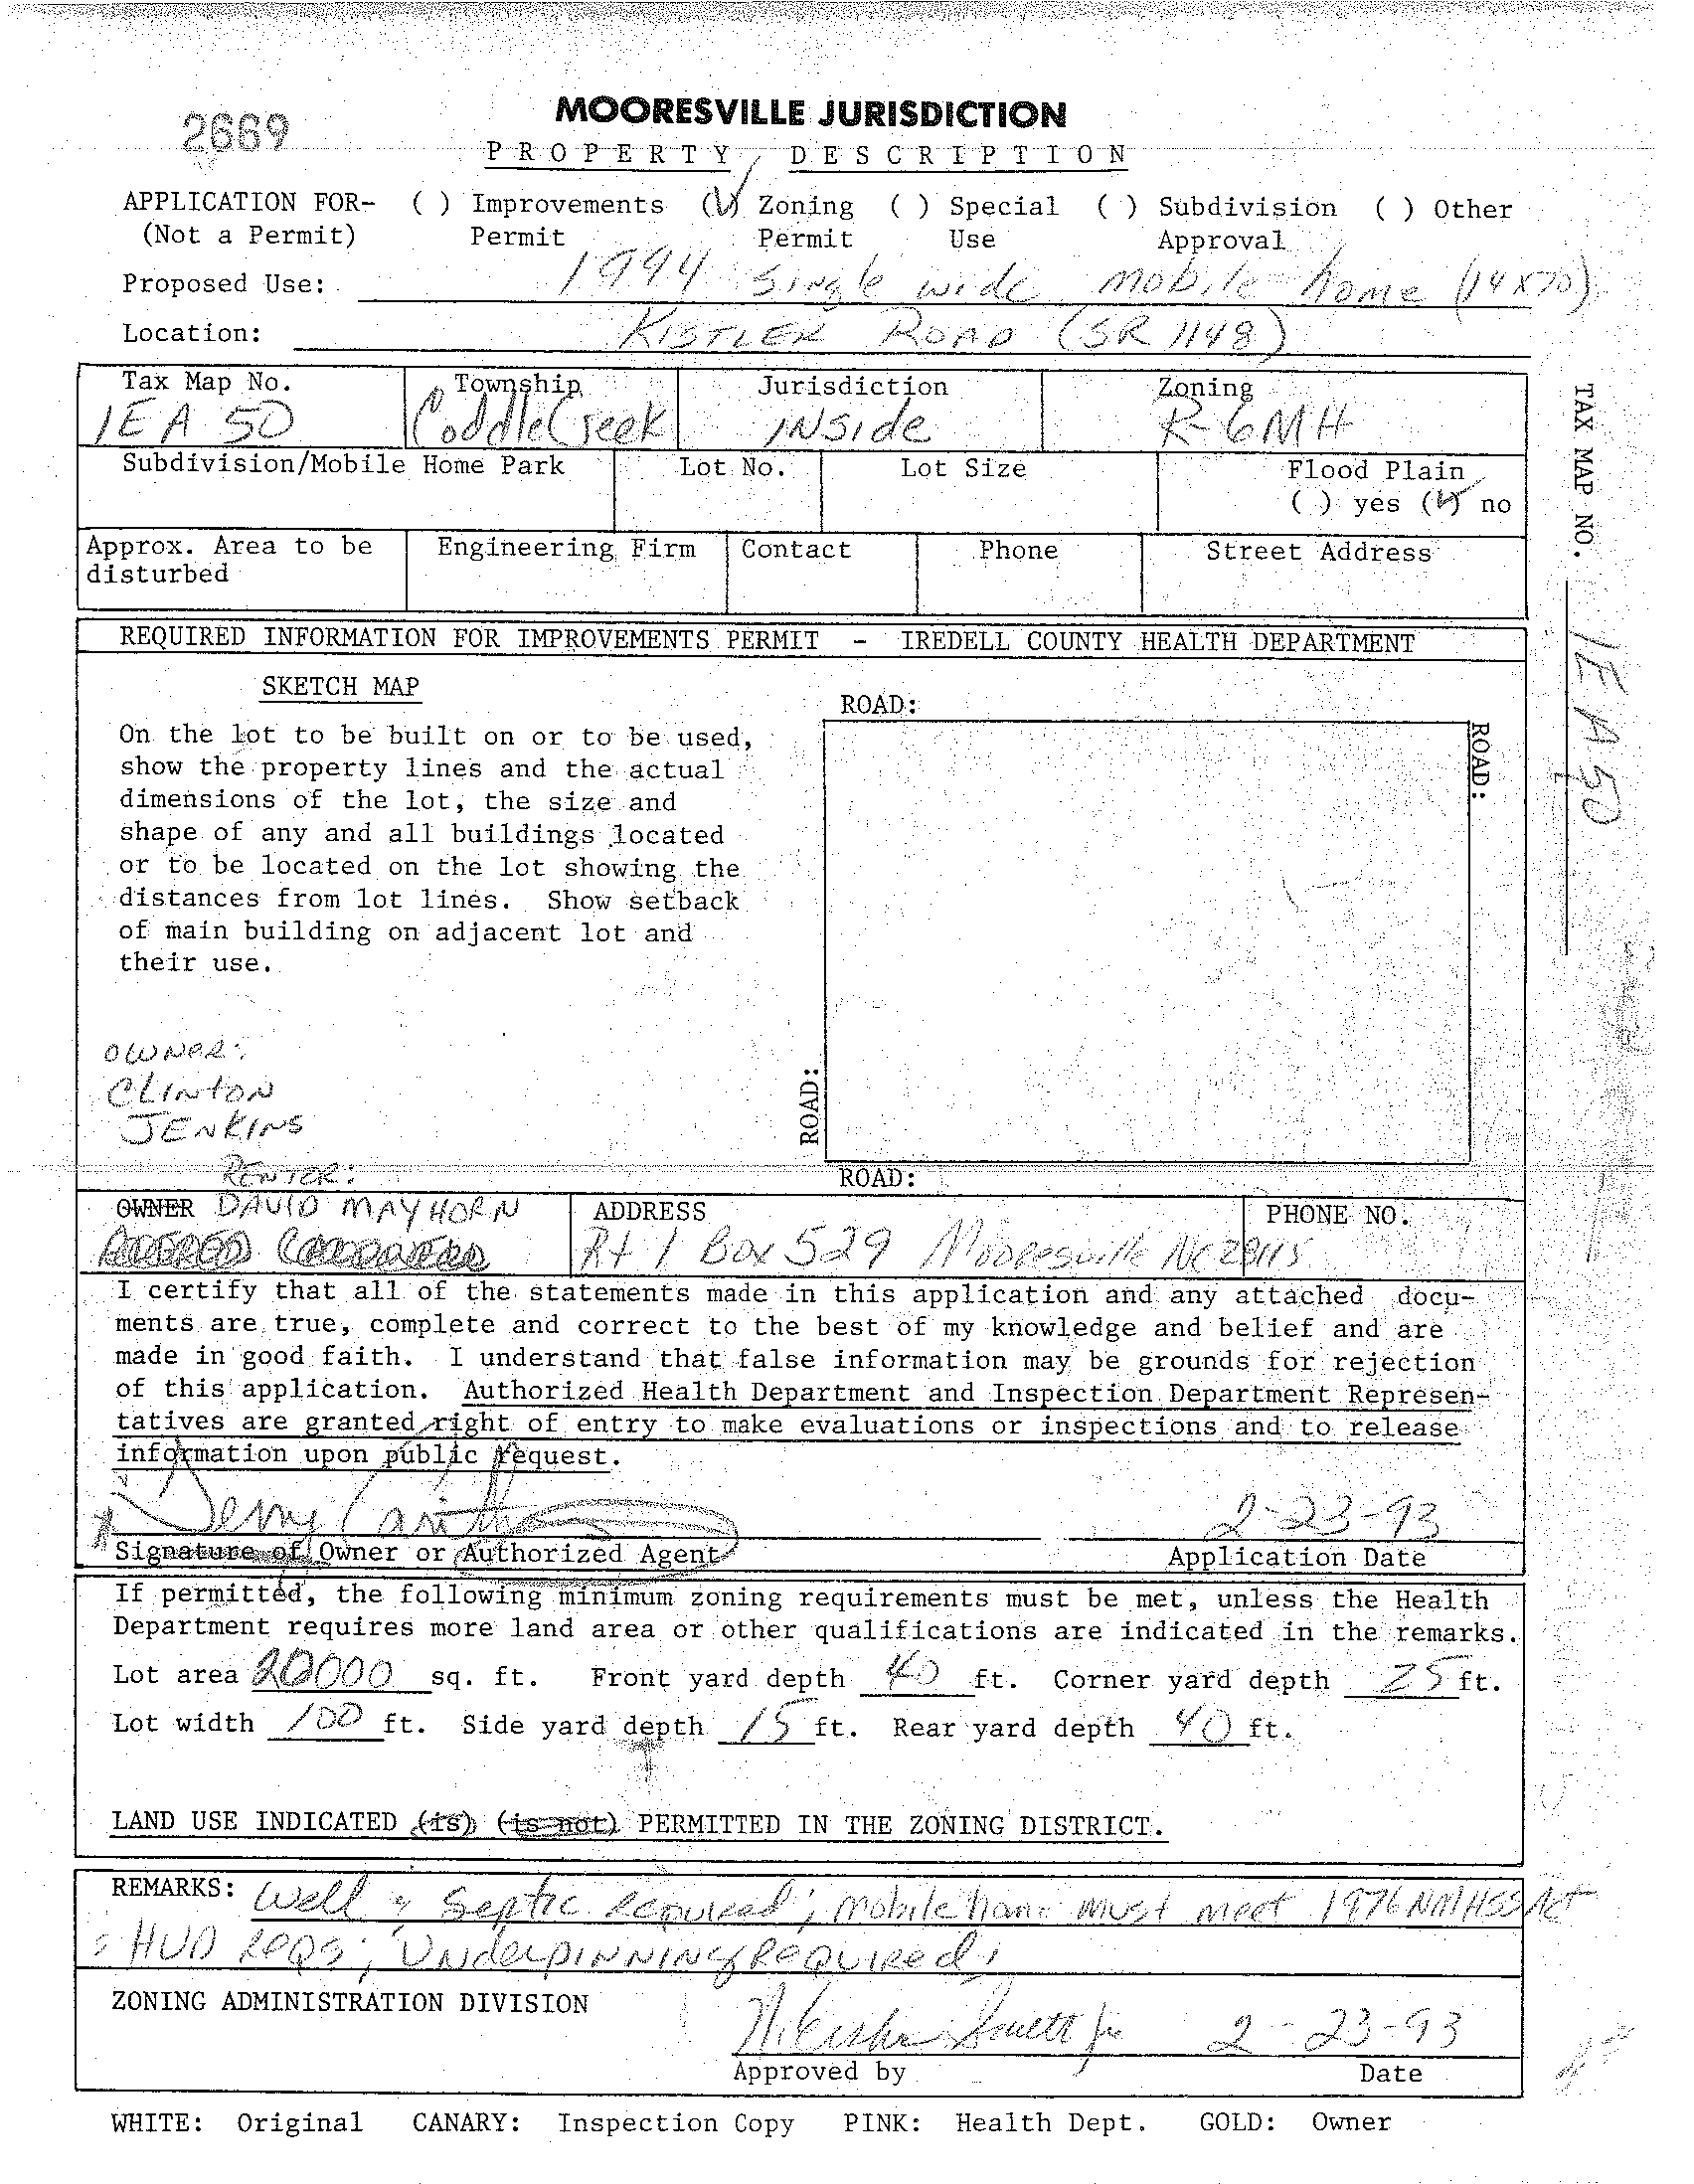 2669
MOORESVILLE JURISDICTION
PROPERTY DESCRIPTION
APPLICATION FOR- ( ) Improvements (✓) Zoning ( ) Special ( ) Subdivision ( ) Other
(Not a Permit) Permit Permit Use Approval
Proposed Use: 1994 single wide mobile home (14x70)
Location: KISTLER ROAD (SR 1148)
Tax Map No. Township Jurisdiction Zoning
1E A 50 Coddle Creek INSide R-6MH
Subdivision/Mobile Home Park Lot No. Lot Size Flood Plain
( ) yes (✓) no
Approx. Area to be Engineering Firm Contact Phone Street Address
disturbed
TAX MAP NO. 1E A 50
REQUIRED INFORMATION FOR IMPROVEMENTS PERMIT - IREDELL COUNTY HEALTH DEPARTMENT
SKETCH MAP
ROAD:
On the lot to be built on or to be used,
show the property lines and the actual
dimensions of the lot, the size and
shape of any and all buildings located
or to be located on the lot showing the
distances from lot lines. Show setback
of main building on adjacent lot and
their use.
ROAD:
OWNER:
CLINTON
JENKINS
ROAD:
RENTOR:
ROAD:
OWNER DAVID MAYHORN ADDRESS PHONE NO.
Rt 1 Box 529 Mooresville NC 28115
I certify that all of the statements made in this application and any attached docu-
ments are true, complete and correct to the best of my knowledge and belief and are
made in good faith. I understand that false information may be grounds for rejection
of this application. Authorized Health Department and Inspection Department Represen-
tatives are granted right of entry to make evaluations or inspections and to release
information upon public request.
2-23-93
Signature of Owner or Authorized Agent Application Date
If permitted, the following minimum zoning requirements must be met, unless the Health
Department requires more land area or other qualifications are indicated in the remarks.
Lot area 20000 sq. ft. Front yard depth 40 ft. Corner yard depth 25 ft.
Lot width 100 ft. Side yard depth 15 ft. Rear yard depth 40 ft.
LAND USE INDICATED (is) (is not) PERMITTED IN THE ZONING DISTRICT.
REMARKS: Well & Septic Required; mobile home must meet 1976 NMHSS Act
: HUD REQS; UNderpINNING REQUIRed;
ZONING ADMINISTRATION DIVISION
2-23-93
Approved by Date
WHITE: Original CANARY: Inspection Copy PINK: Health Dept. GOLD: Owner